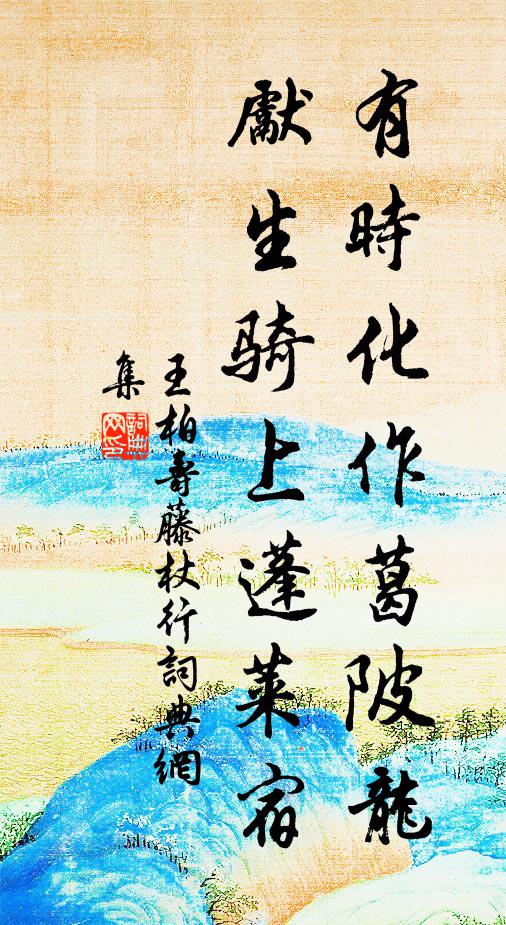 有時化作葛陂龍
獻生騎上蓬萊宿
王柏壽藤杖行詞典網
集
詞典網